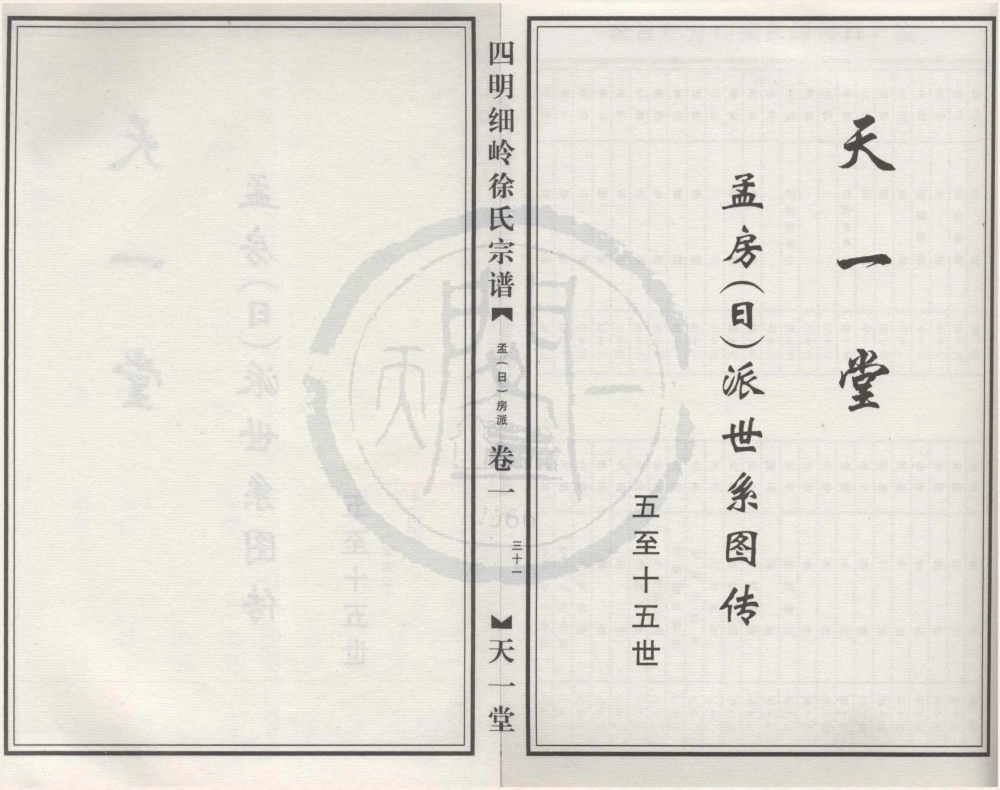 天一堂
孟房(日)派世系图传
五至十五世
四明细岭徐氏宗谱
孟(日)房派
卷一
三十一
天一堂
天一
1566